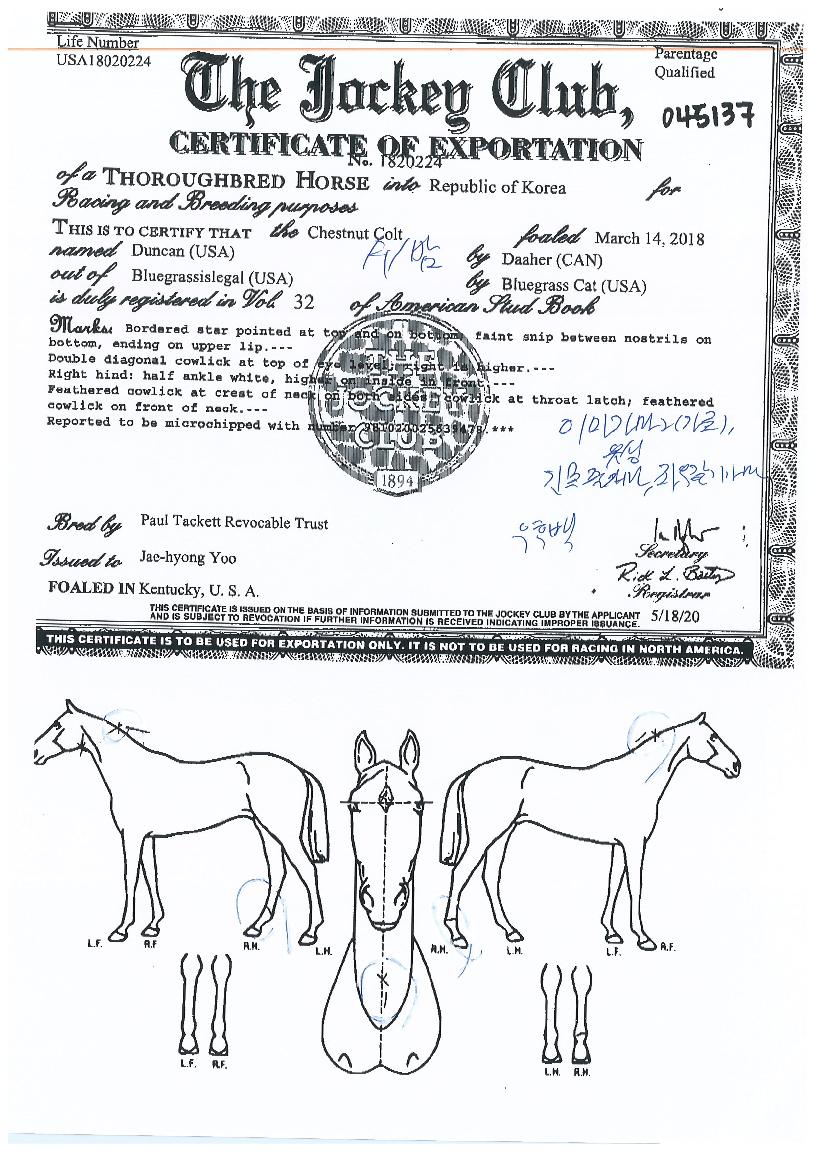 Life Number
USA18020224
Parentage
Qualified
The Jockey Club,
045137
CERTIFICATE OF EXPORTATION
No. 1820224
of a THOROUGHBRED HORSE into Republic of Korea for
Racing and Breeding purposes
THIS IS TO CERTIFY THAT the Chestnut Colt foaled March 14, 2018
named Duncan (USA) by Daaher (CAN)
out of Bluegrassislegal (USA) by Bluegrass Cat (USA)
is duly registered in Vol. 32 of American Stud Book
Marks: Bordered star pointed at top and on bottom, faint snip between nostrils on
bottom, ending on upper lip.---
Double diagonal cowlick at top of eye level; right is higher.---
Right hind: half ankle white, higher on inside in front.---
Feathered cowlick at crest of neck on both sides; cowlick at throat latch; feathered
cowlick on front of neck.---
Reported to be microchipped with number .***
THE
JOCKEY
CLUB
1894
Bred by Paul Tackett Revocable Trust
Issued to Jae-hyong Yoo
Secretary
Registrar
FOALED IN Kentucky, U. S. A.
THIS CERTIFICATE IS ISSUED ON THE BASIS OF INFORMATION SUBMITTED TO THE JOCKEY CLUB BY THE APPLICANT
AND IS SUBJECT TO REVOCATION IF FURTHER INFORMATION IS RECEIVED INDICATING IMPROPER ISSUANCE. 5/18/20
THIS CERTIFICATE IS TO BE USED FOR EXPORTATION ONLY. IT IS NOT TO BE USED FOR RACING IN NORTH AMERICA.
L.F. R.F R.H. L.H. R.H. L.H. L.F. R.F.
L.F. R.F. L.H. R.H.